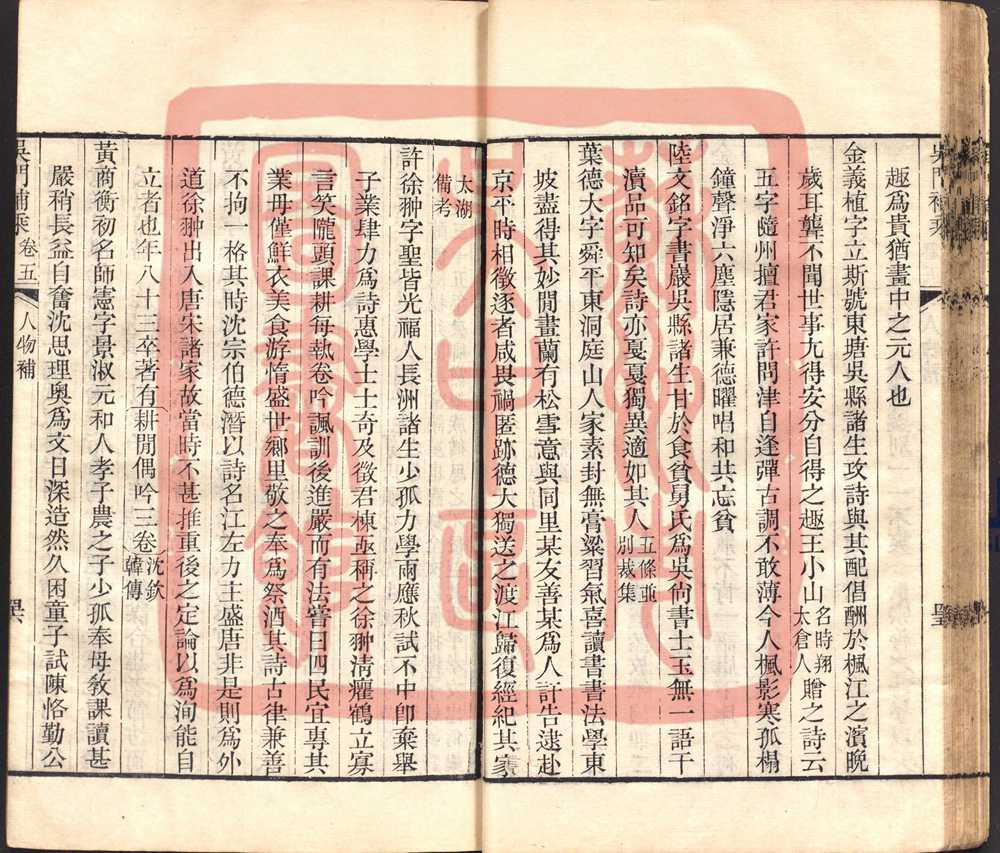 趣爲貴猶畫中之元人也
金義植字立斯號東塘吳縣諸生攻詩與其配倡酬於楓江之濱晚
歲耳聾不聞世事尢得安分自得之趣王小山名時翔太倉人贈之詩云
五字隨州擅君家許問津自逢彈古調不敢薄今人楓影寒孤榻
鐘聲淨六塵隱居兼德曜唱和共忘貧
陸文銘字書巖吳縣諸生甘於食貧舅氏爲吳尙書士玉無一語干
瀆品可知矣詩亦戛戛獨異適如其人五條並別裁集
葉德大字舜平東洞庭山人家素封無膏粱習氣喜讀書書法學東
坡盡得其妙閒畫蘭有松雪意與同里某友善某爲人訐告逮赴
京平時相徵逐者咸畏禍匿跡德大獨送之渡江歸復經紀其家
太湖備考
許徐翀字聖皆光福人長洲諸生少孤力學兩應秋試不中卽棄舉
子業肆力爲詩惠學士士奇及徵君棟亟稱之徐翀清癯鶴立寡
言笑隴頭課耕每執卷吟諷訓後進嚴而有法嘗曰四民宜專其
業毋僅鮮衣美食游惰盛世鄉里敬之奉爲祭酒其詩古律兼善
不拘一格其時沈宗伯德潛以詩名江左力主盛唐非是則爲外
道徐翀出入唐宋諸家故當時不甚推重後之定論以爲洵能自
立者也年八十三卒著有耕閒偶吟三卷沈欽韓傳
黃蔄衡初名師憲字景淑元和人孝子農之子少孤奉母敎課讀甚
嚴稍長益自奮沈思理奧爲文日深造然久困童子試陳恪勤公
吳門補乘 卷五 人物補